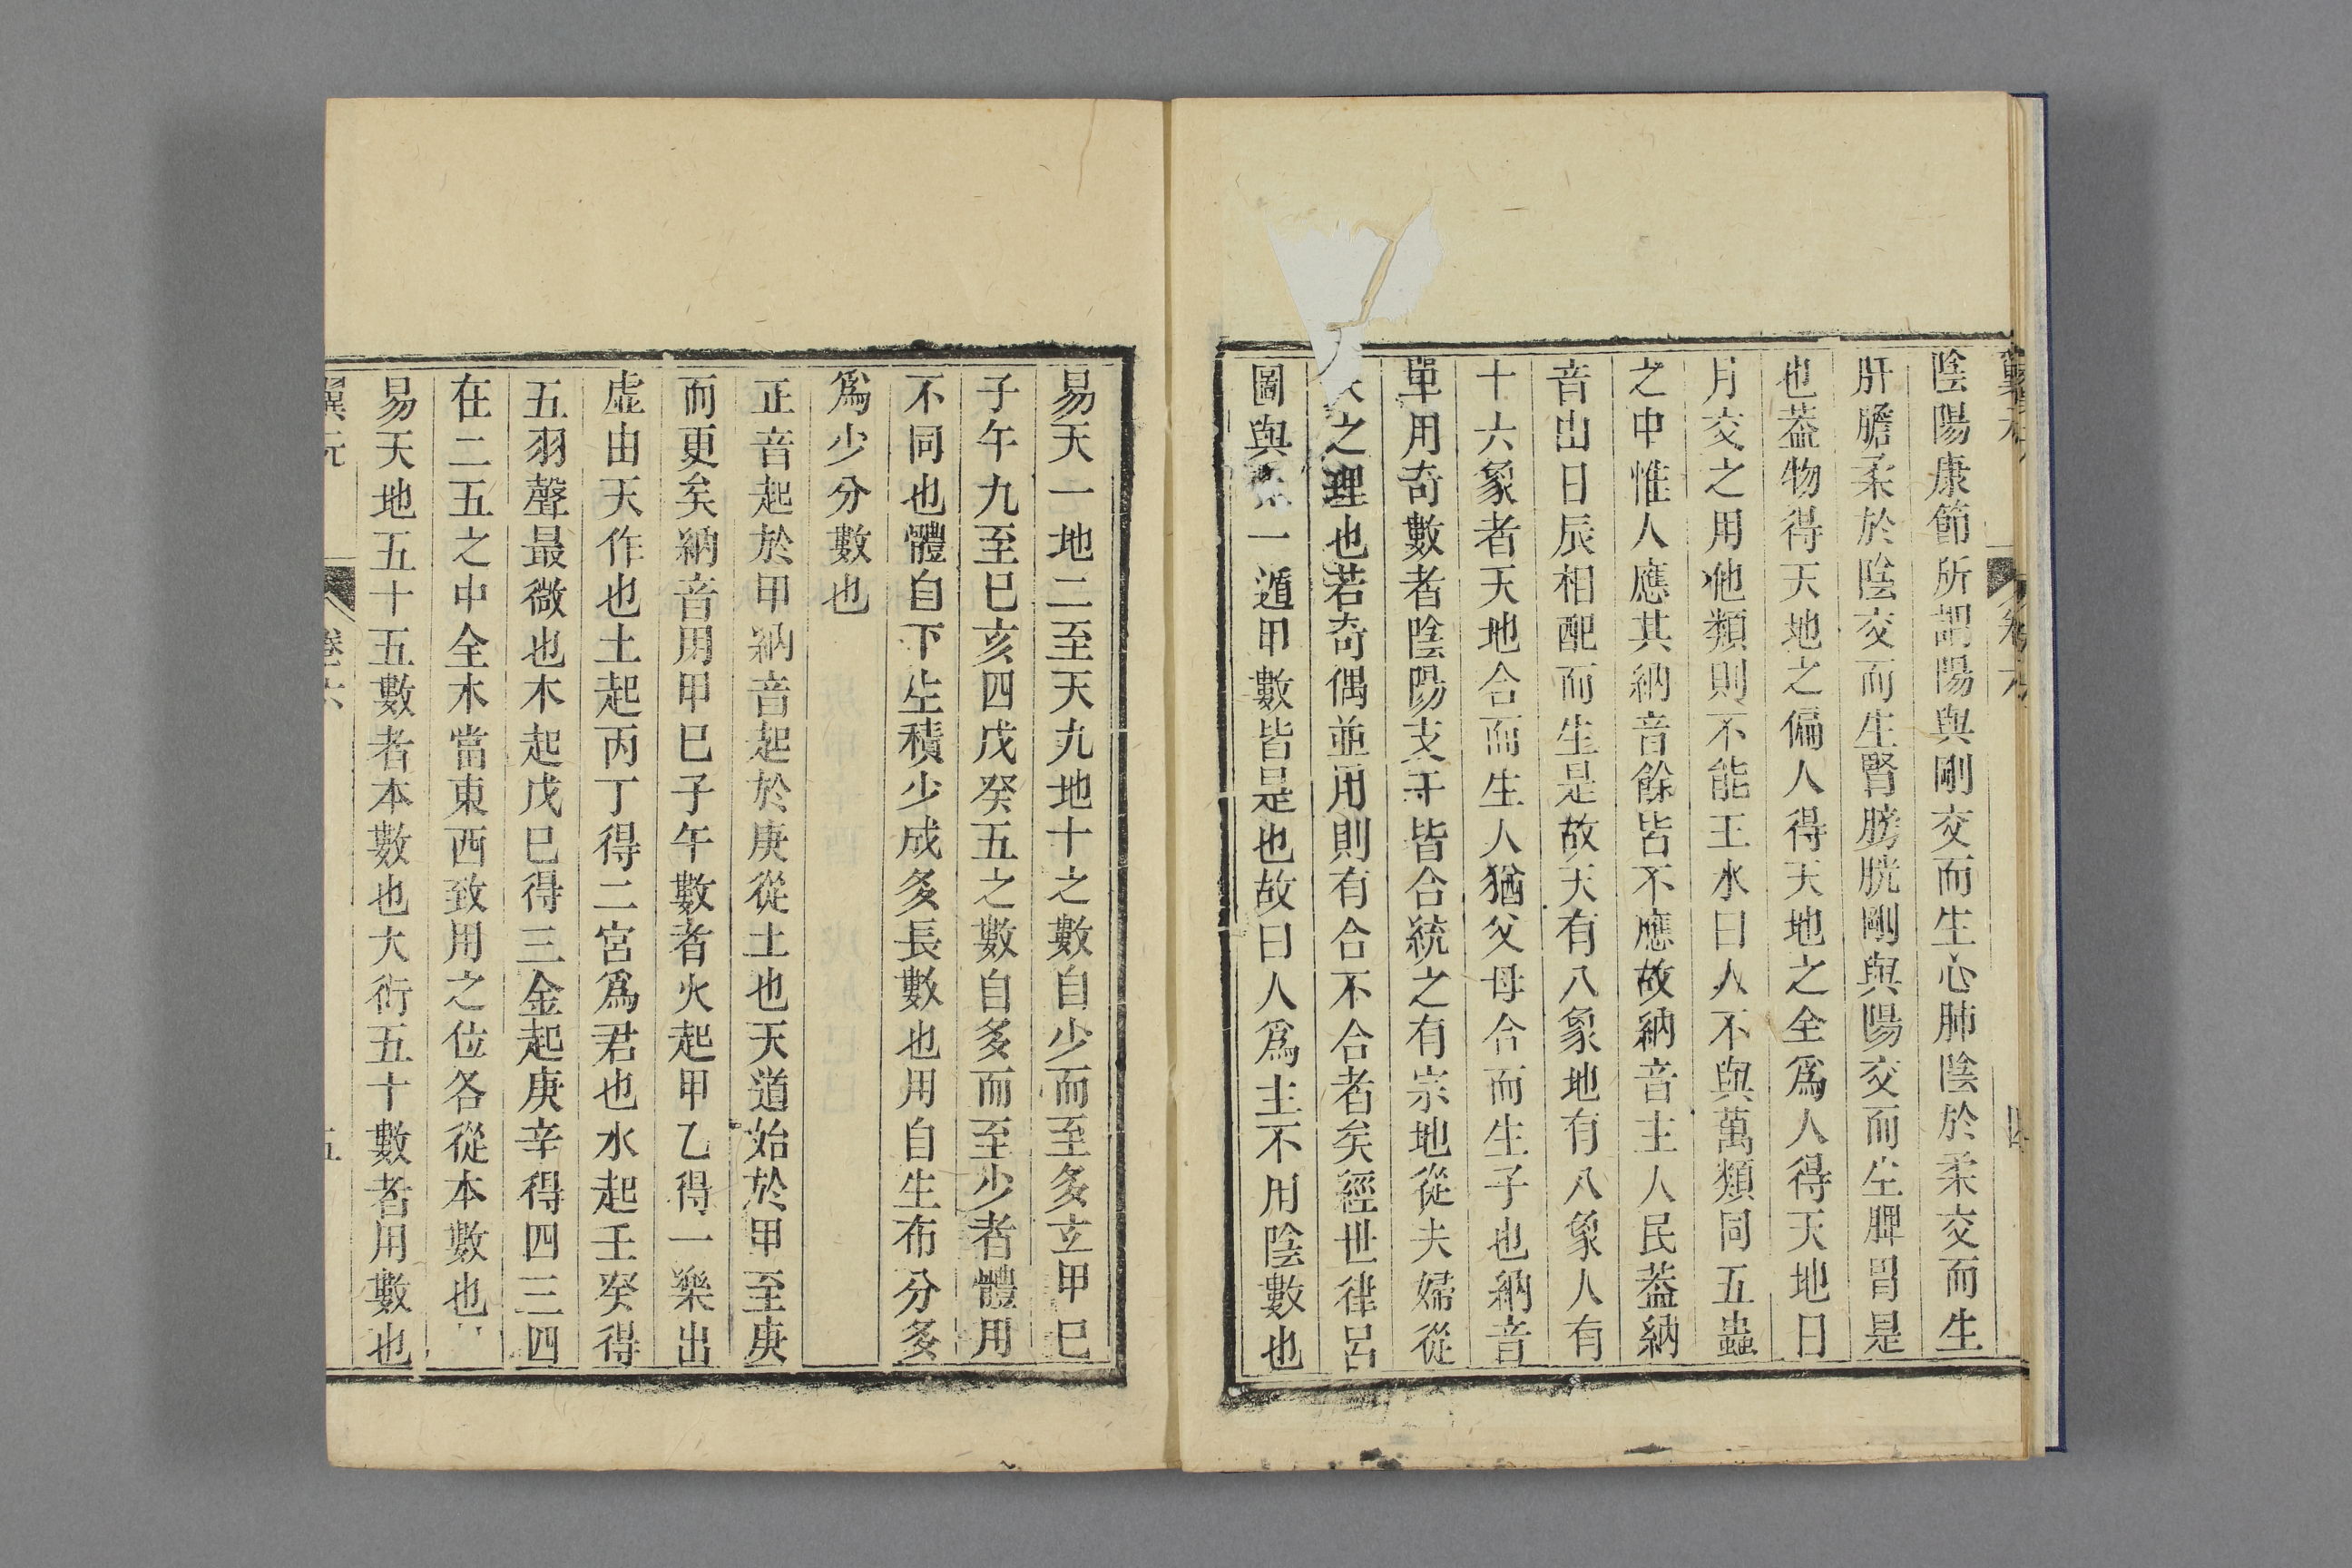 陰陽康節所謂陽與剛交而生心肺陰於柔交而生
肝膽柔於陰交而生腎膀胱剛與陽交而生脾胃是
也葢物得天地之偏人得天地之全爲人得天地日
月交之用他類則不能王水曰人不與萬類同五蟲
之中惟人應其納音餘皆不應故納音主人民葢納
音出日辰相配而生是故天有八象地有八象人有
十六象者天地合而生人猶父母合而生子也納音
單用奇數者陰陽支干皆合統之有宗地從夫婦從
之理也若奇偶並用則有合不合者矣經世律呂
圖與一遁甲數皆是也故曰人爲主不用陰數也
易天一地二至天九地十之數自少而至多玄甲巳
子午九至巳亥四戊癸五之數自多而至少者體用
不同也體自下生積少成多長數也用自生布分多
爲少分數也
正音起於甲納音起於庚從土也天道始於甲至庚
而更矣納音用甲巳子午數者火起甲乙得一樂出
虛由天作也土起丙丁得二宮爲君也水起壬癸得
五羽聲最微也木起戊巳得三金起庚辛得四三四
在二五之中全木當東西致用之位各從本數也
易天地五十五數者本數也大衍五十數者用數也
卷六
五